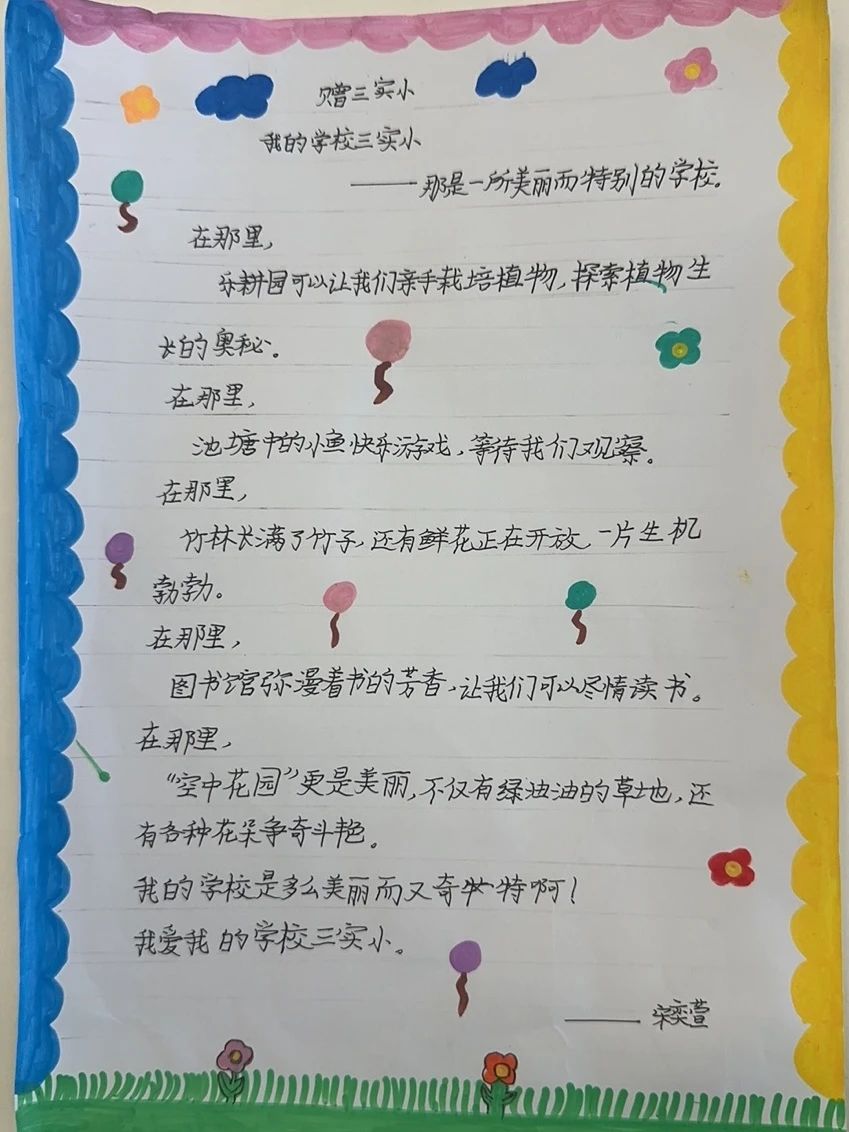 赠三实小
我的学校三实小
——那是一所美丽而特别的学校。
在那里，
乐耕园可以让我们亲手栽培植物，探索植物生
长的奥秘。
在那里，
池塘中的小鱼快乐游戏，等待我们观察。
在那里，
竹林长满了竹子，还有鲜花正在开放，一片生机
勃勃。
在那里，
图书馆弥漫着书的芳香，让我们可以尽情读书。
在那里，
“空中花园”更是美丽，不仅有绿油油的草地，还
有各种花朵争奇斗艳。
我的学校是多么美丽而又奇特啊！
我爱我的学校三实小。
——宋奕萱